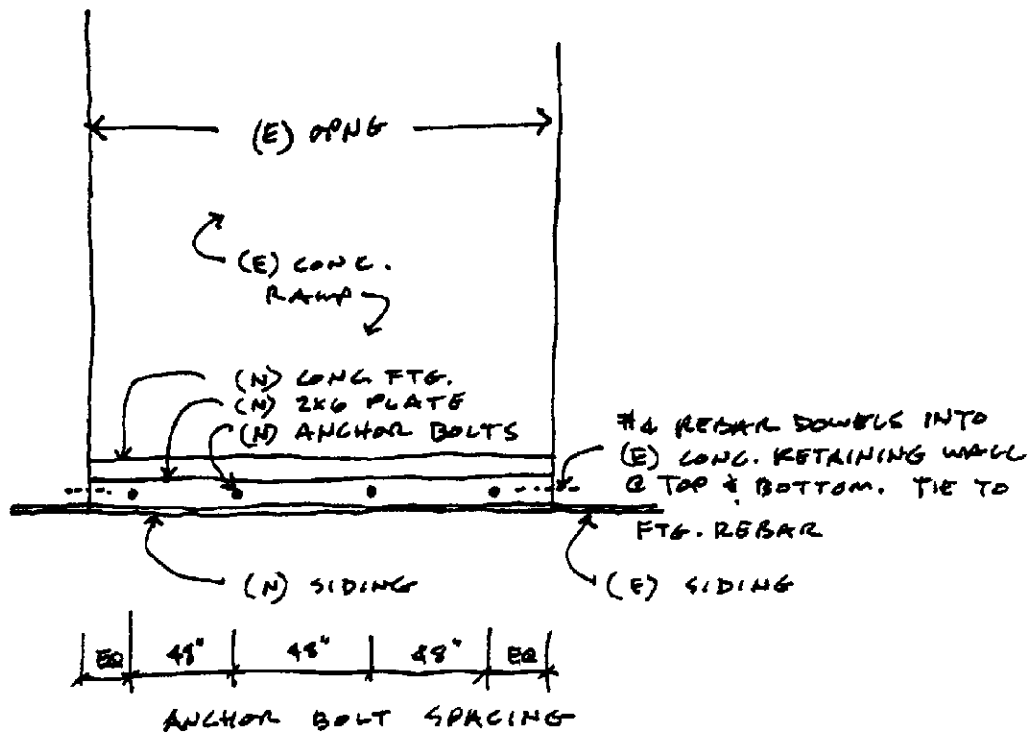 (E) OPNG
(E) CONC.
RAMP
(N) CONC. FTG.
(N) 2X6 PLATE
(N) ANCHOR BOLTS
#4 REBAR DOWELS INTO
(E) CONC. RETAINING WALL
@ TOP & BOTTOM. TIE TO
FTG. REBAR
(N) SIDING
(E) SIDING
EQ 48" 48" 48" EQ
ANCHOR BOLT SPACING